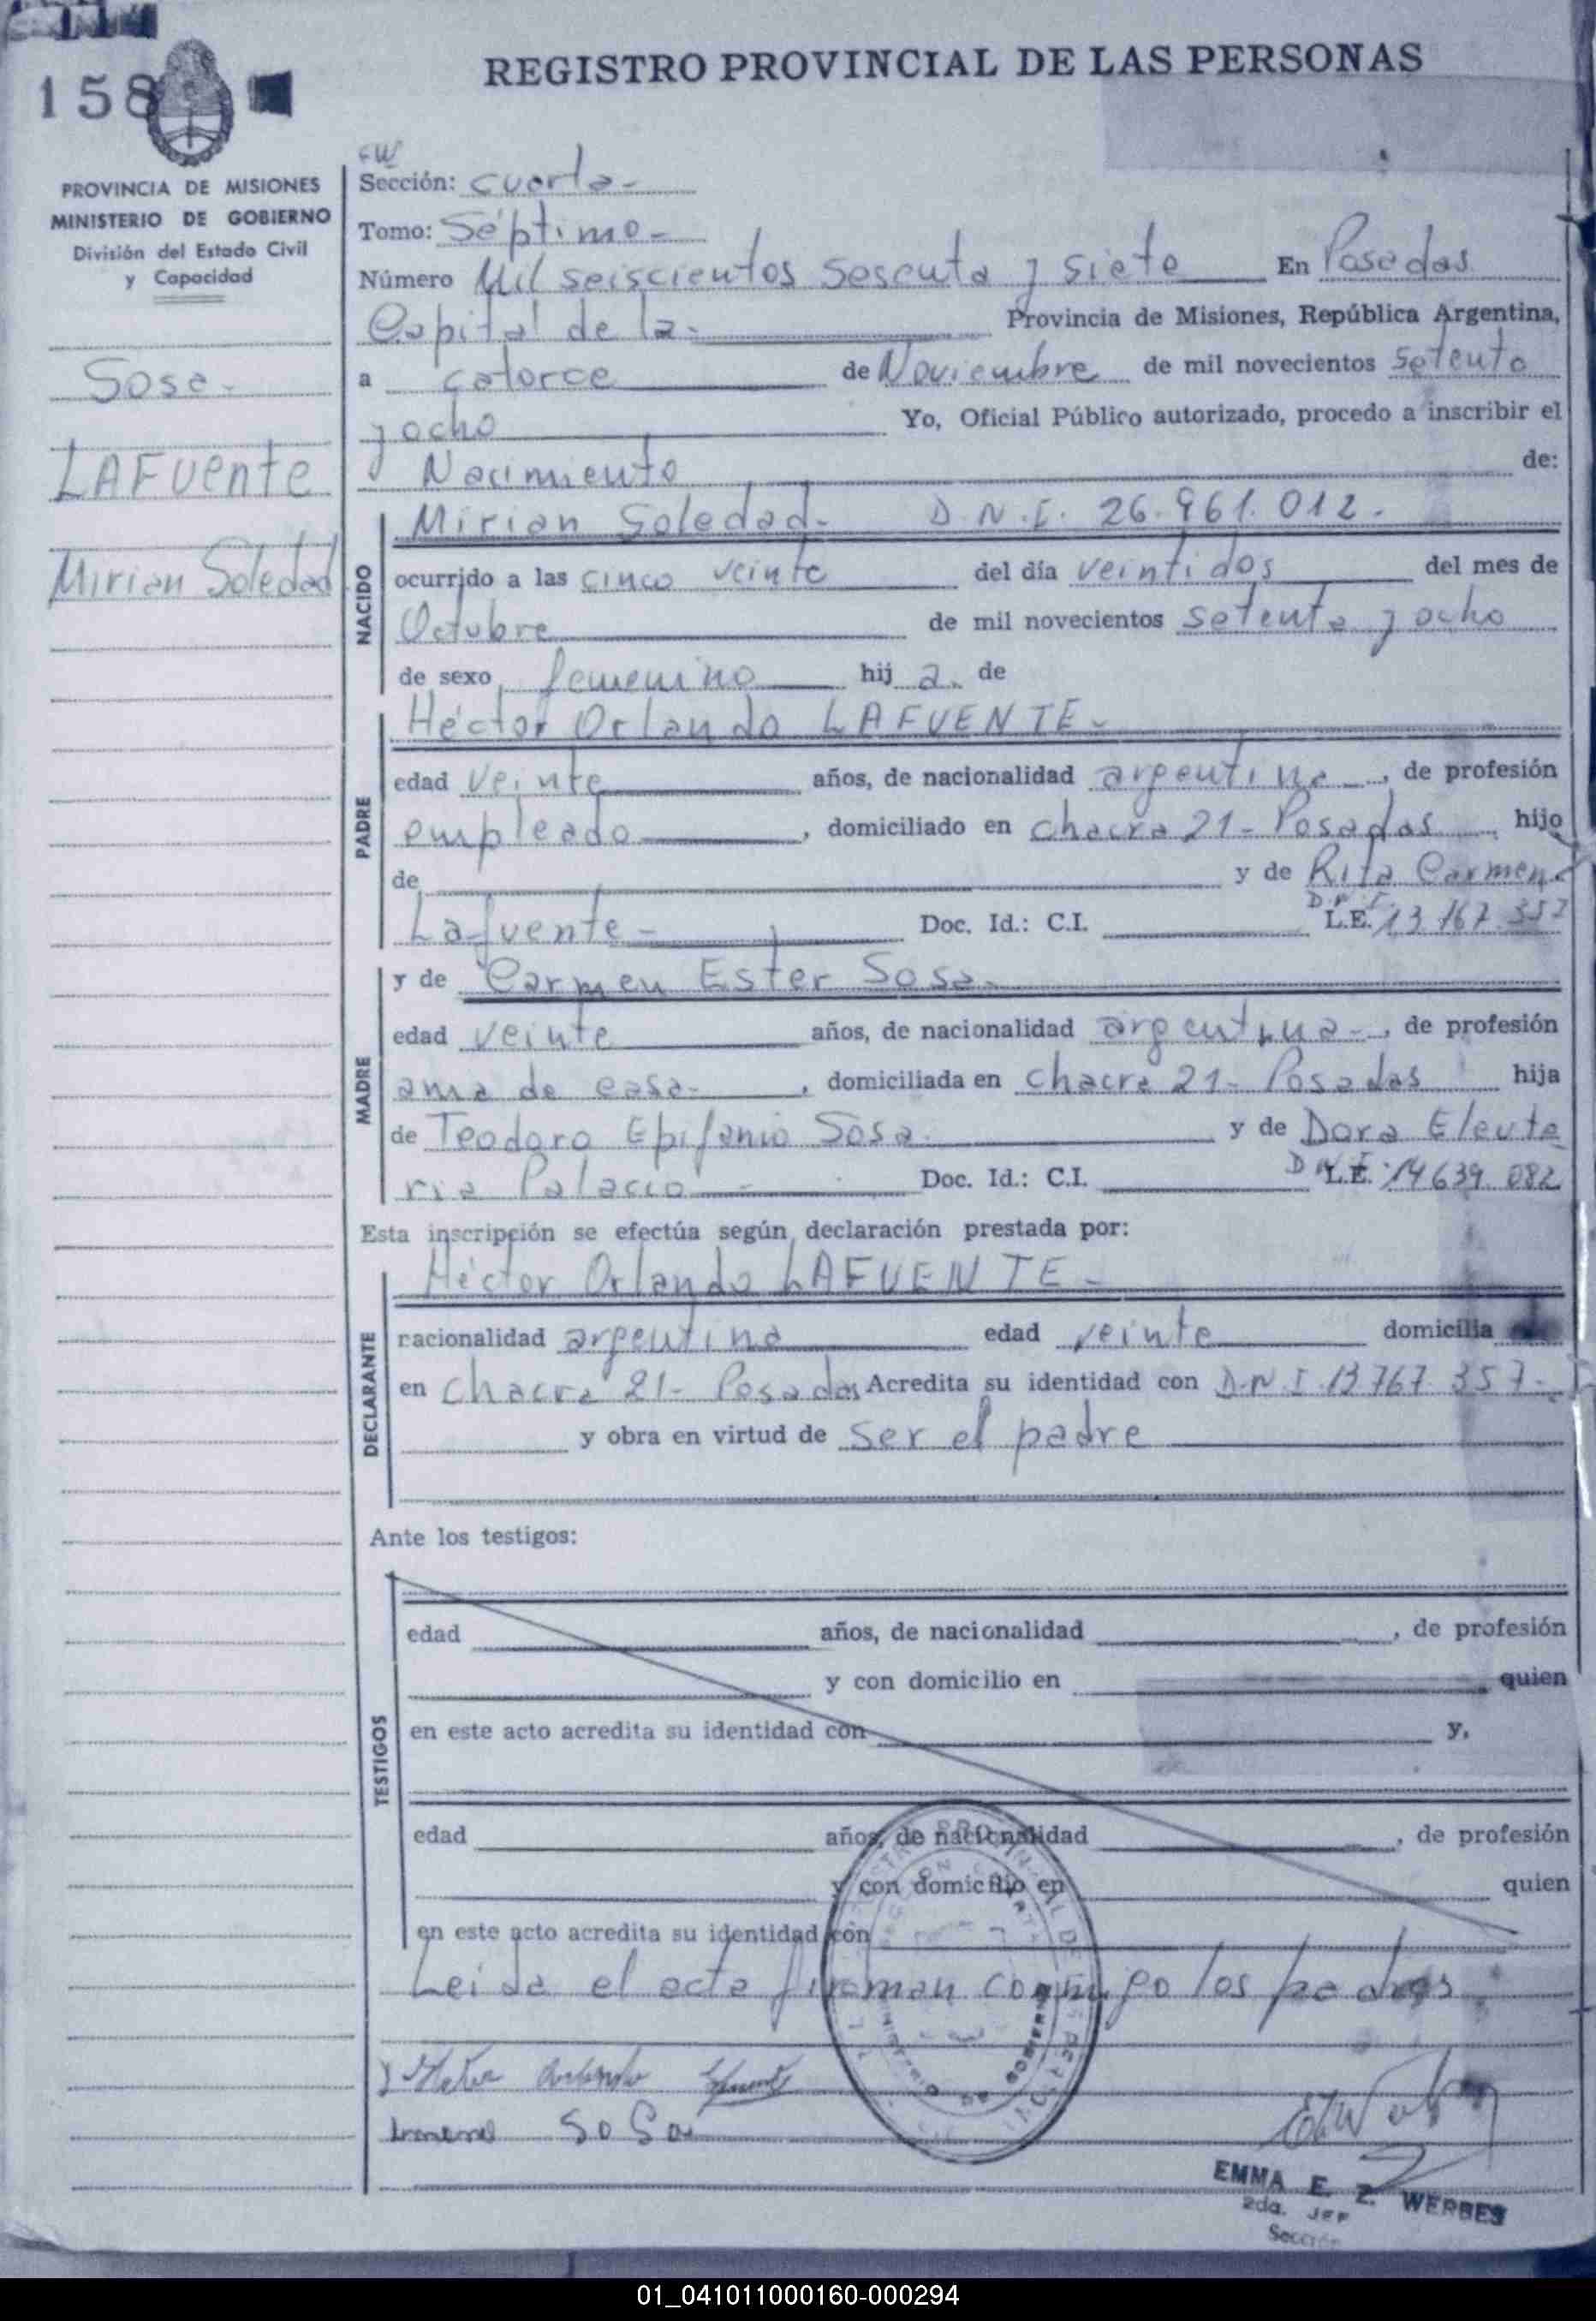 158
REGISTRO PROVINCIAL DE LAS PERSONAS
PROVINCIA DE MISIONES
MINISTERIO DE GOBIERNO
División del Estado Civil
y Capacidad
Sosa-
LAFUente
Mirian Soledad
EW
Sección: cuarta-
Tomo: Séptimo-
Número Mil seiscientos sesenta y siete En Posadas
Capital de la- Provincia de Misiones, República Argentina,
a catorce de Noviembre de mil novecientos setenta
y ocho Yo, Oficial Público autorizado, procedo a inscribir el
Nacimiento de:
NACIDO
Mirian Soledad- D.N.I. 26.961.012.
ocurrido a las cinco veinte del día veintidos del mes de
Octubre de mil novecientos setenta y ocho
de sexo femenino hij a. de
PADRE
Héctor Orlando LAFUENTE-
edad veinte años, de nacionalidad argentina, de profesión
empleado, domiciliado en chacra 21- Posadas hijo
de y de Rita Carmen
Lafuente- Doc. Id.: C.I. D.N.I. L.E. 13.767.357
MADRE
y de Carmen Ester Sosa-
edad veinte años, de nacionalidad argentina-, de profesión
ama de casa-, domiciliada en chacra 21- Posadas hija
de Teodoro Epifanio Sosa- y de Dora Eleute
ria Palacio- Doc. Id.: C.I. D.N.I. L.E. 14639.082
Esta inscripción se efectúa según declaración prestada por:
DECLARANTE
Héctor Orlando LAFUENTE-
racionalidad argentina edad veinte domicilia
en chacra 21- Posadas Acredita su identidad con D.N.I. 13767.357-
y obra en virtud de ser el padre
Ante los testigos:
TESTIGOS
edad años, de nacionalidad , de profesión
y con domicilio en quien
en este acto acredita su identidad con y,
edad años, de nacionalidad , de profesión
y con domicilio en quien
en este acto acredita su identidad con
Leida el acta firman conmigo los padres
Sosa
EMMA E. Z. WERBES
2da. JEF
Sección
01_041011000160-000294